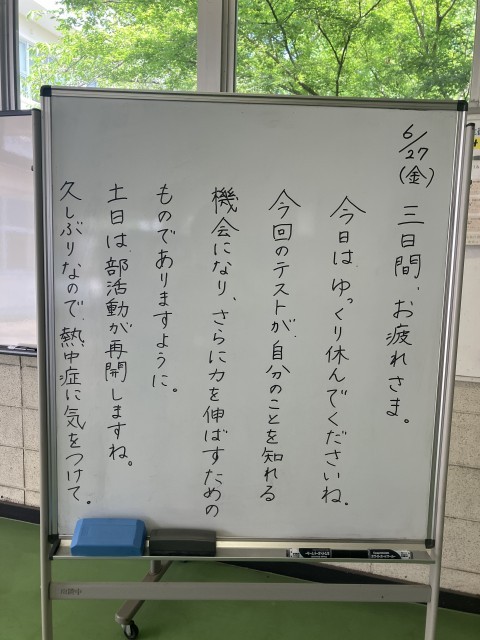 6/27(金)
三日間、お疲れさま。
今日は、ゆっくり休んでくださいね。
今回のテストが、自分のことを知れる
機会になり、さらに力を伸ばすための
ものでありますように。
土日は、部活動が再開しますね。
久しぶりなので、熱中症に気をつけて。